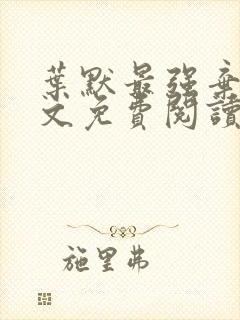 葉默最强棄
文免費閱讀
施里弗